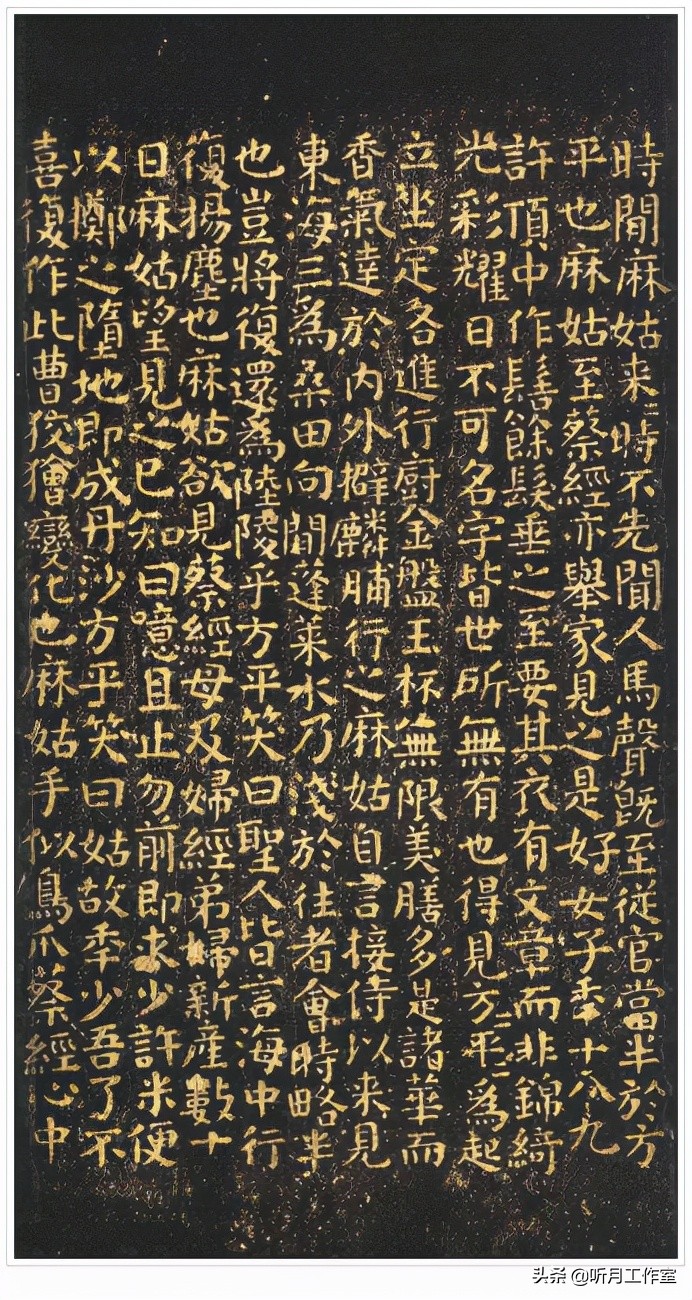 時間麻姑来〻時不先聞人馬聲既至從官當半於方
平也麻姑至蔡經亦舉家見之是好女子年十八九
許頂中作髻餘髮垂之至要其衣有文章而非錦綺
光彩耀日不可名字皆世所無有也得見方〻平〻為起
立坐定各進行廚金盤玉杯無限美膳多是諸華而
香氣達於内外擗麟脯行之麻姑自言接侍以来見
東海三為桑田向間蓬萊水乃淺於往者會時略半
也豈將復還為陸陵乎方平笑曰聖人皆言海中行
復揚塵也麻姑欲見蔡經母及婦經弟婦新産數十
日麻姑望見之已知曰噫且止勿前即求少許米便
以擲之墮地即成丹沙方平笑曰姑故年少吾了不
喜復作此曹狡獪變化也麻姑手似鳥爪蔡經心中
头条 @听月工作室